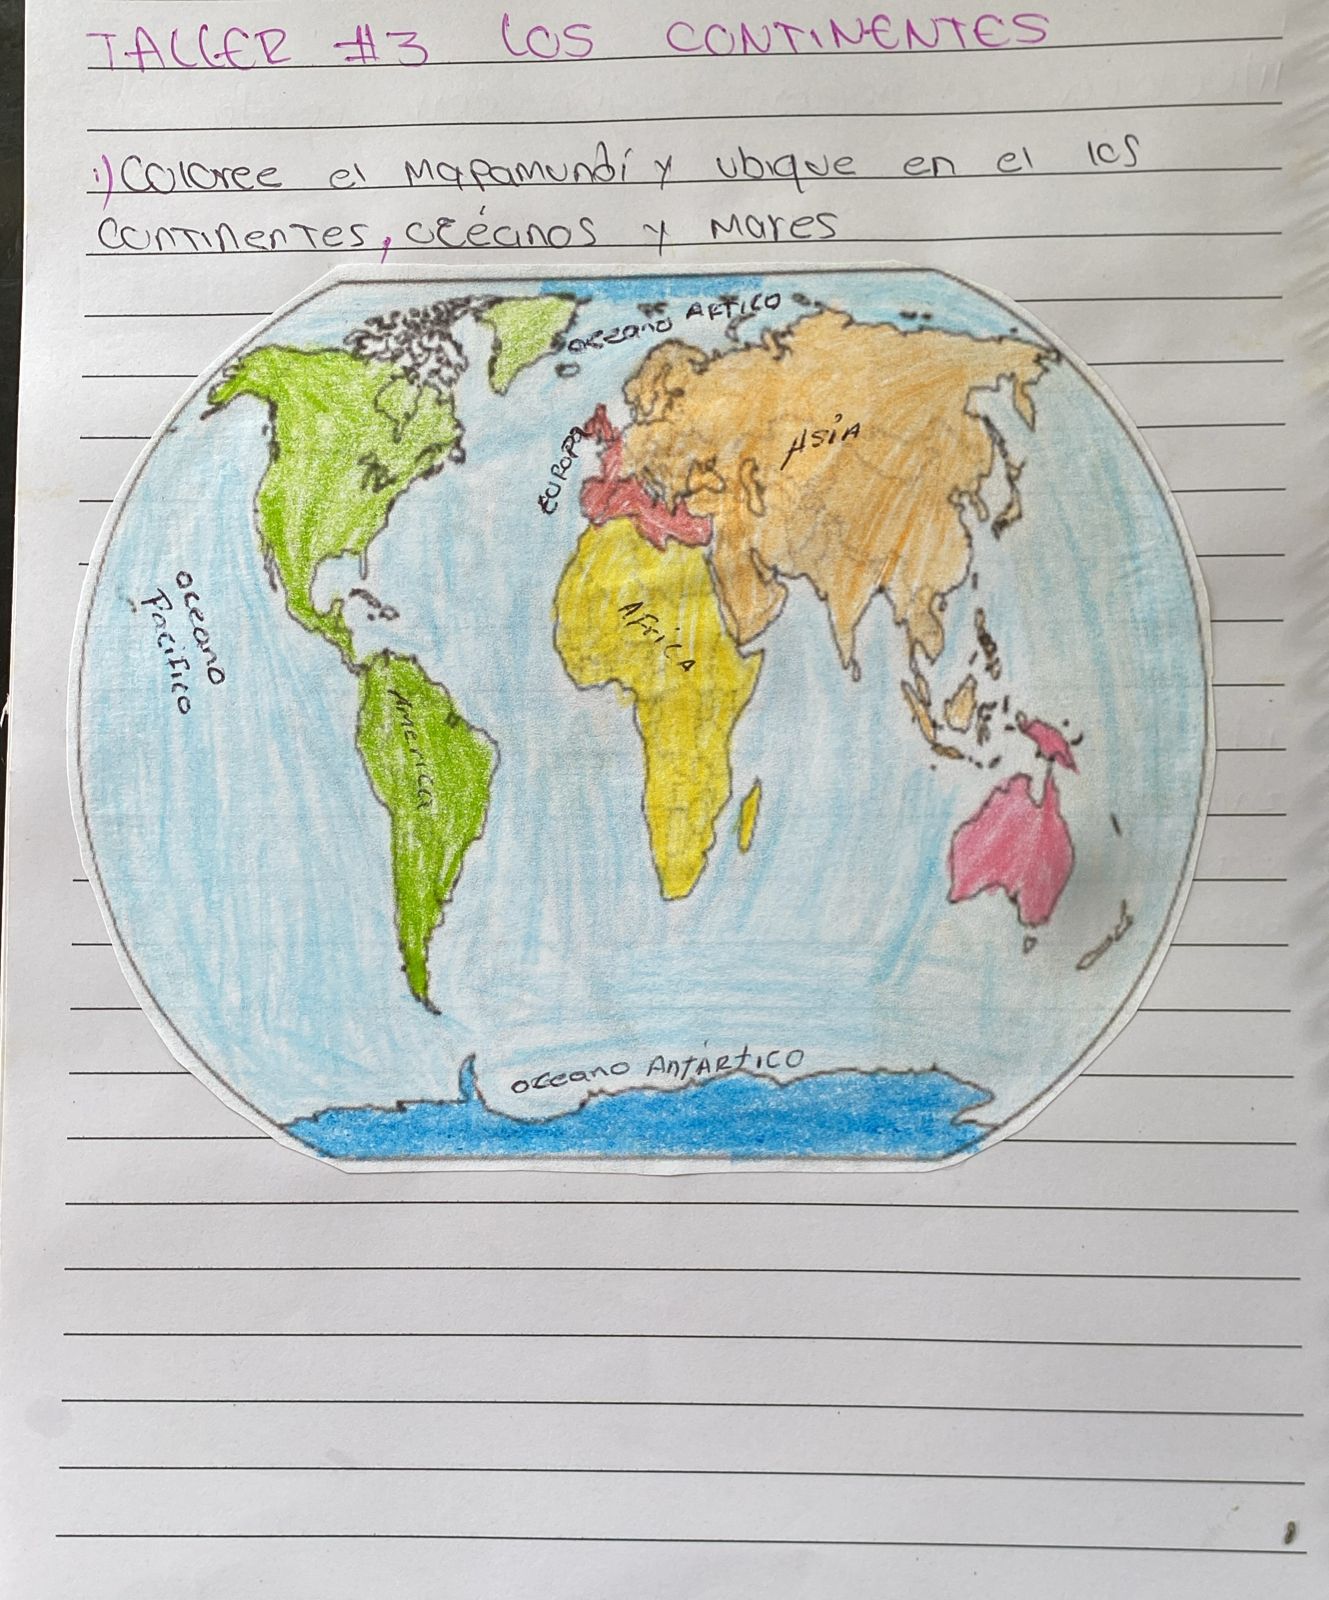 TALLER #3 LOS CONTINENTES
1) Coloree el Mapamundí y ubique en el los
continentes, océanos y Mares
oceano ARTICO
EUROPA
ASiA
oceano
Pacifico
AfricA
America
oceano AntÁRtICO